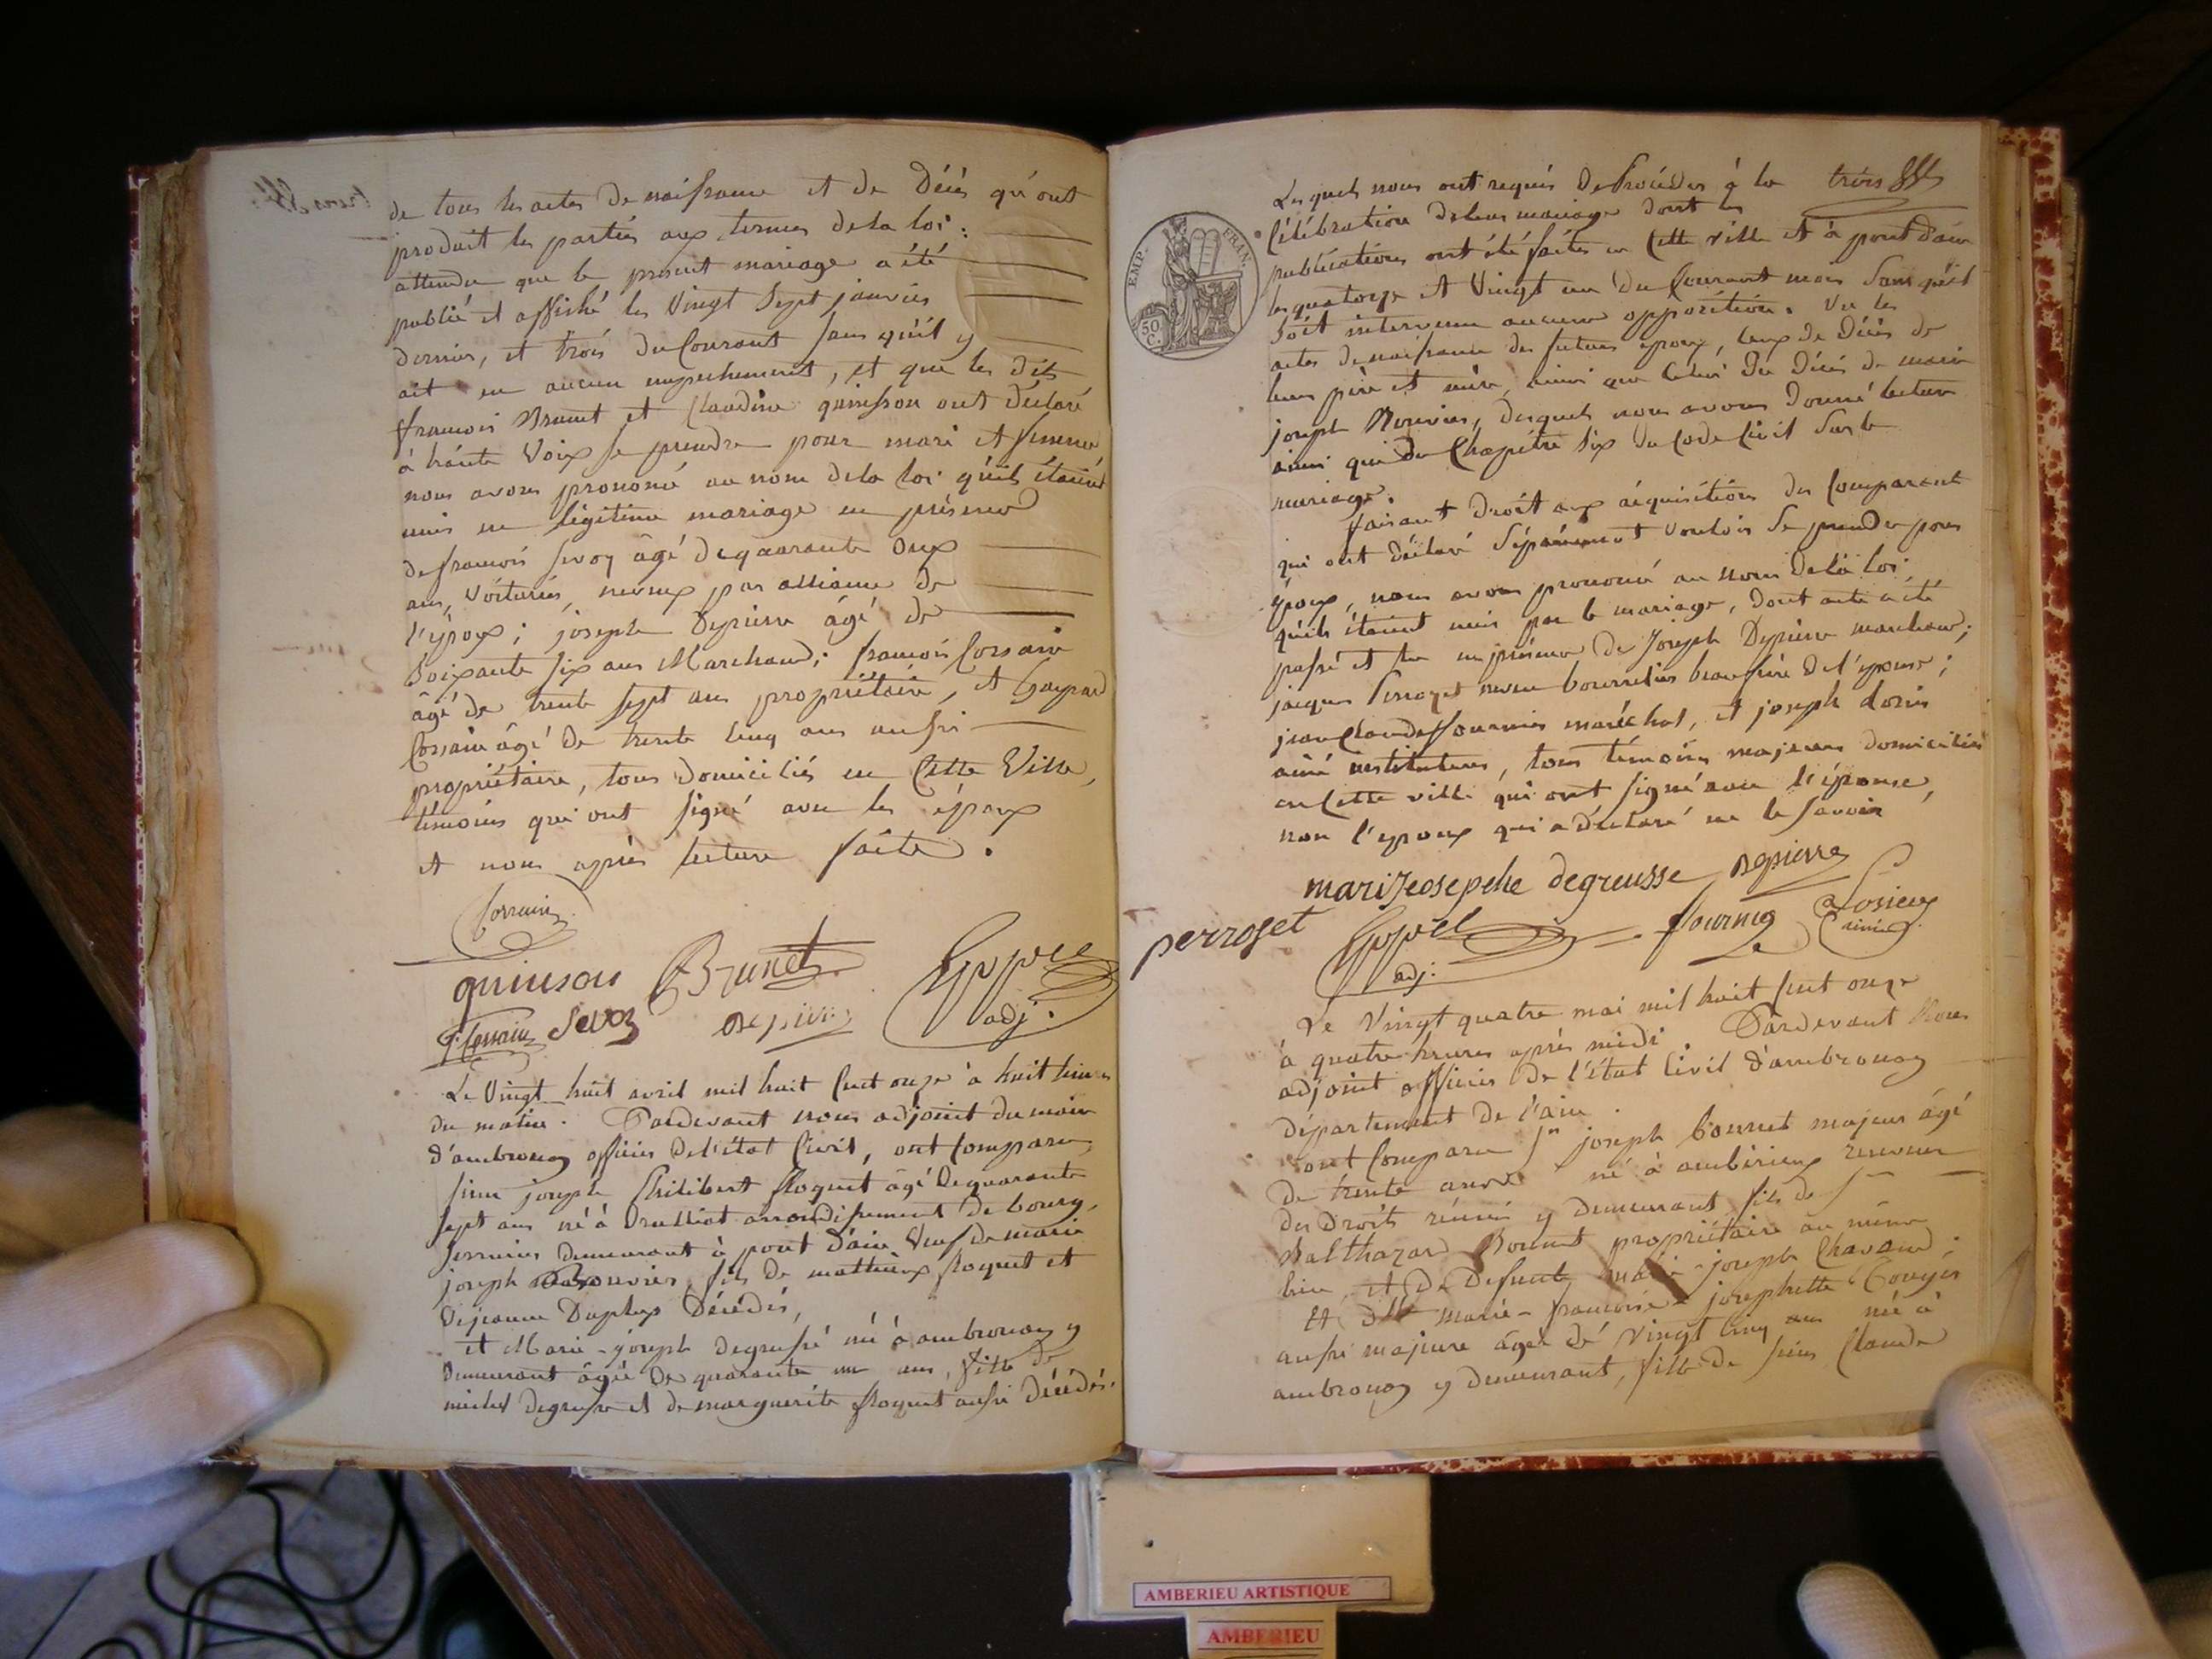 de tous les actes de naissance et de décès qu'ont
produit les parties aux termes de la loi :
attendu que le présent mariage a été
publié et affiché les vingt sept janvier
dernier, et trois du courant sans qu'il y
ait eu aucun empechement, et que les dits
françois Brunet et Claudine quinson ont déclaré
à haute voix se prendre pour mari et femme
nous avons prononcé au nom de la loi qu'ils étaient
unis en légitime mariage en présence
de françois sevoz âgé de quarante deux
ans, voiturier, neveux par alliance de
l'époux ; joseph Depierre âgé de
soixante six ans Marchand ; françois Corsain
âgé de trente sept ans propriétaire, et Gaspard
Corsain âgé de trente cinq ans aussi
propriétaire, tous domiciliés en cette ville,
témoins qui ont signé avec les époux
et nous après lecture faite .
Corsain
quinson Brunet
Sevoz Depierre adj.
Le vingt huit avril mil huit cent onze à huit heures
du matin. Pardevant nous adjoint du maire
d'ambronay officier de l'état civil, ont comparu,
sieur joseph Philibert floquet âgé de quarante
sept ans né à Druillat arrondissement de bourg,
serrurier demeurant à pont d'ain veuf de marie
joseph Bouvier, fils de mathieux floquet et
de jeanne Duplux décédés,
et Marie-joseph degrusse né à ambronay y
demeurant âgée de quarante un ans, fille de
michel degrusse et de marguerite floquet aussi décédés.
Lesquels nous ont requis de procéder à la trois
célébration de leur mariage dont les
publications ont été faites en cette ville et à pont d'ain
les quatorze et vingt un du courant mois sans qu'il
soit intervenu aucune opposition. Vu les
actes de naissance des futurs époux, ceux de décès de
leurs père et mère, ainsi que celui du décès de marie
joseph Bouvier, desquels nous avons donné lecture
ainsi que du chapitre six du code civil sur le
mariage.
faisant droit aux réquisitions des comparant
qui ont déclaré séparément vouloir se prendre pour
époux, nous avons prononcé au nom de la loi,
qu'ils étaient unis par le mariage, dont acte a été
passé et lu en présence de Joseph Depierre marchand ;
jacques Perrozet neveu bourrelier beau frère de l'épouse ;
jean Claude fournier maréchal, et joseph
ainé instituteur, tous témoins majeurs domiciliés
en cette ville qui ont signé avec l'épouse,
non l'époux qui a déclaré ne le savoir
marijeosepehe degreusse Depierre
perrozet fournier ainé
adj.
Le vingt quatre mai mil huit cent onze
à quatre heures après midi. Pardevant Nous
adjoint officier de l'état civil d'ambronay
département de l'ain.
ont comparu Sr joseph bonnet majeur âgé
de trente ans né à ambérieux receveur
des droits réunis y demeurant fils de Sr
Balthazard Bonnet propriétaire au même
lieu et de defunte marie-joseph Chavant ;
Et Dlle marie-françoise-josephette
aussi majeure âgée de vingt cinq ans née à
ambronay y demeurant, fille de sieur Claude
EMP. FRAN.
50 C.
AMBERIEU ARTISTIQUE
AMBERIEU